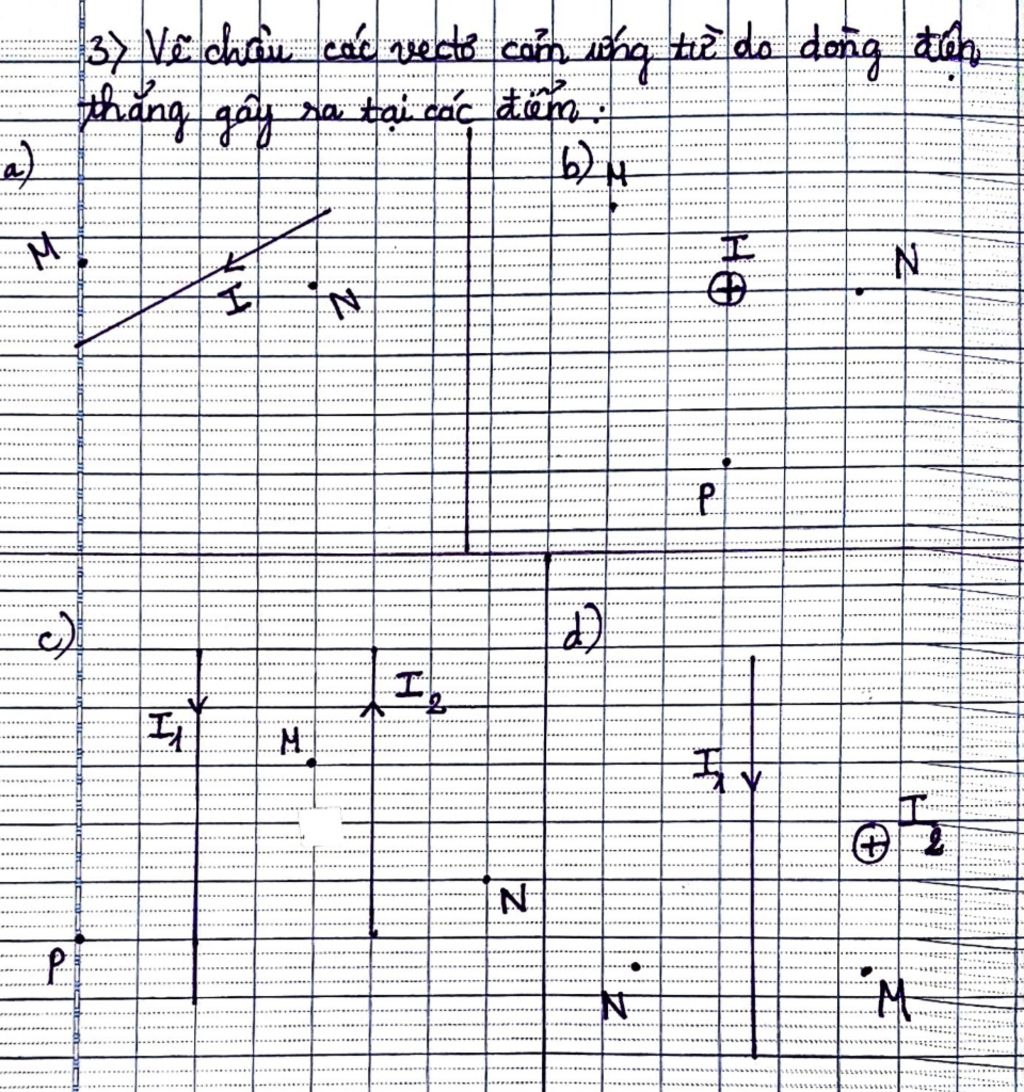 3) Vẽ chiều các vectơ cảm ứng từ do dòng điện
thẳng gây ra tại các điểm :
a)
M
I
N
b)
M
I
N
P
c)
I₁
M
I₂
N
P
d)
I₁
I₂
N
M